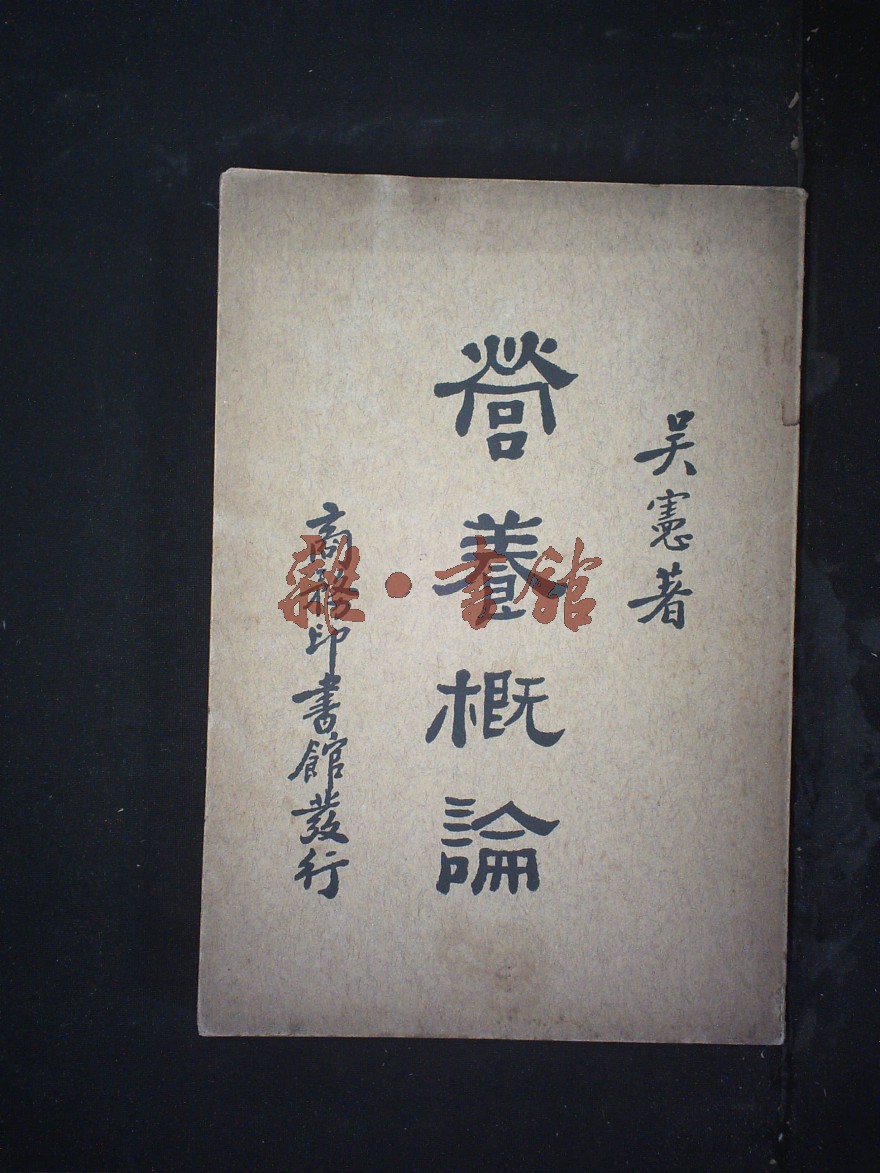 吴憲著
營養概論
商務印書館發行
雜·書館